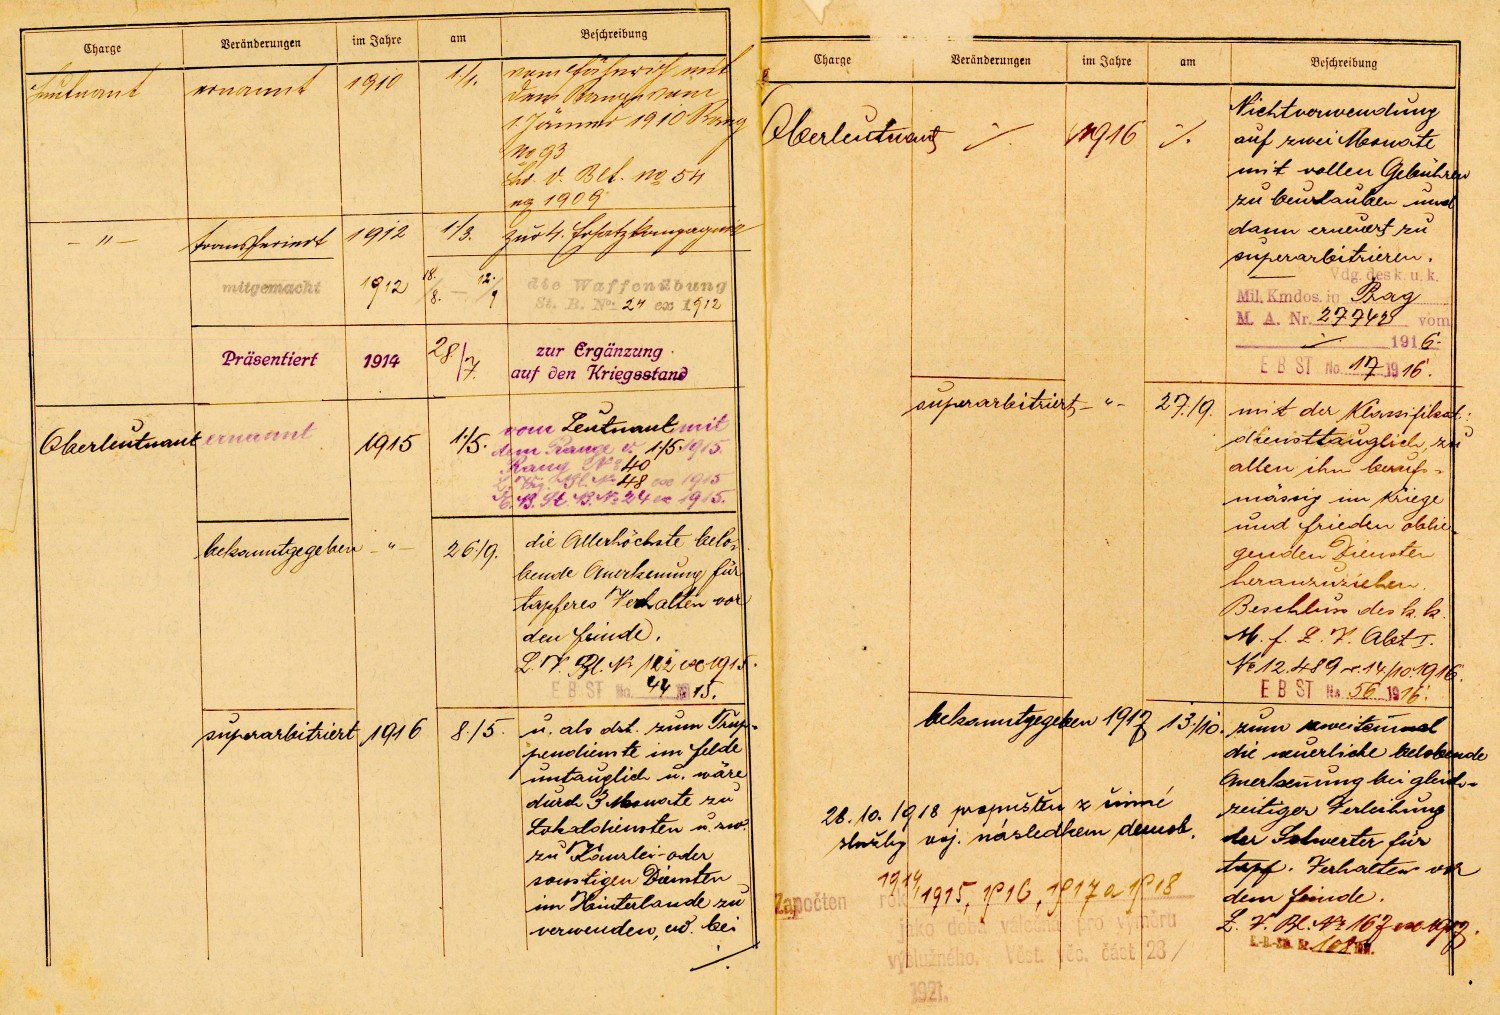 Charge Veränderungen im Jahre am Beschreibung
Leutnant ernannt 1910 1/1. vom Fähnrich mit
dem Range vom
1. Jänner 1910 Rang
No 93
V. Blt. No 54
1909
— " — transferiert 1912 1/3. zur 4. Ersatzkompagnie
mitgemacht 1912 18./8. — 12./9 die Waffenübung
St. B. No. 24 ex 1912
Präsentiert 1914 28/7. zur Ergänzung
auf den Kriegsstand
Oberleutnant ernannt 1915 1./5. vom Leutnant mit
dem Range v. 1./5. 1915
Rang No 40
Bl. No 48 ex 1915
E. B. St. B. No 24 ex 1915.
bekanntgegeben — " — 26./9. die Allerhöchste belo-
bende Anerkennung für
tapferes Verhalten vor
dem Feinde.
L. V. Bl. Nr 122 ex 1915.
E B ST No. 44 1915.
superarbitriert 1916 8./5. u. als dzt. zum Trup-
pendienste im Felde
untauglich u. wäre
durch 3 Monate zu
Lokaldiensten u. zw.
zu Kanzlei- oder
sonstigen Diensten
im Hinterlande zu
verwenden, ev. bei
./.
Charge Veränderungen im Jahre am Beschreibung
Oberleutnant ./. 1916 ./. Nichtverwendung
auf zwei Monate
mit vollen Gebühren
zu beurlauben und
dann erneuert zu
superarbitrieren.
Vdg. des k. u. k.
Mil. Kmdos. in Prag
M. A. Nr. 27742 vom
1916.
E B ST No. 17 1916.
superarbitriert — " — 27./9. mit der Klassifikat.:
diensttauglich, zu
allen ihm berufs-
mässig im Kriege
und Frieden oblie-
genden Diensten
heranzuziehen.
Beschluss des k. k.
M. f. L. V. Abt I.
Nr 12.489 v. 14/10 1916.
E B ST No. 56 1916.
bekanntgegeben 1917 13./10. zum zweitenmal
die neuerliche belobende
Anerkennung bei gleich-
zeitiger Verleihung
der Schwerter für
tapf. Verhalten vor
dem Feinde.
L. V. Bl. Nr 167 ex 1917.
28. 10. 1918 propuštěn z činné
služby voj. následkem demob.
Započten rok 1914, 1915, 1916, 1917 a 1918
jako doba válečná pro výměru
výslužného. Věst. věc. část 28/
1921.